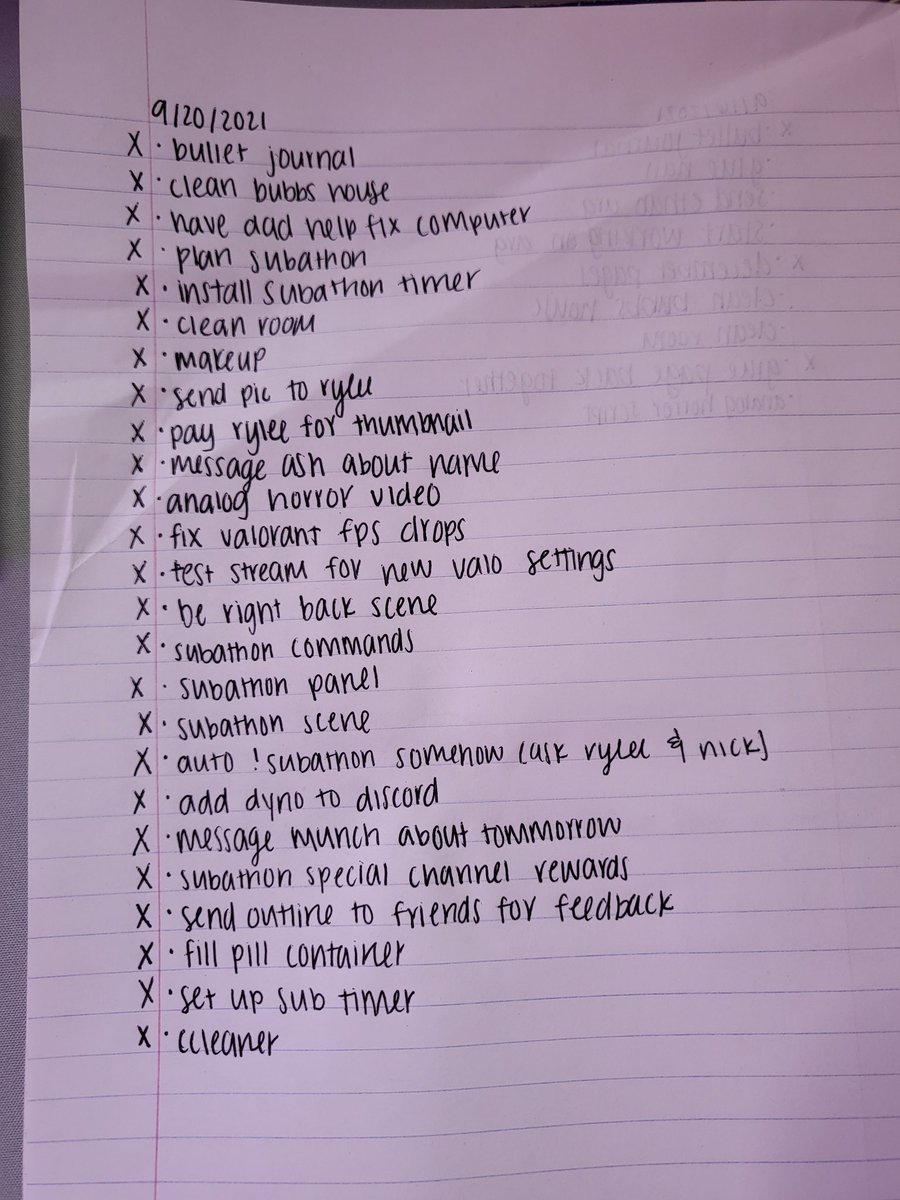 9/20/2021
X · bullet journal
X · clean bubbs house
X · have dad help fix computer
X · plan subathon
X · install subathon timer
X · clean room
X · makeup
X · send pic to rylee
X · pay rylee for thumbnail
X · message ash about name
X · analog horror video
X · fix valorant fps drops
X · test stream for new valo settings
X · be right back scene
X · subathon commands
X · subathon panel
X · subathon scene
X · auto !subathon somehow (ask rylee & nick)
X · add dyno to discord
X · message munch about tommorrow
X · subathon special channel rewards
X · send outline to friends for feedback
X · fill pill container
X · set up sub timer
X · ccleaner